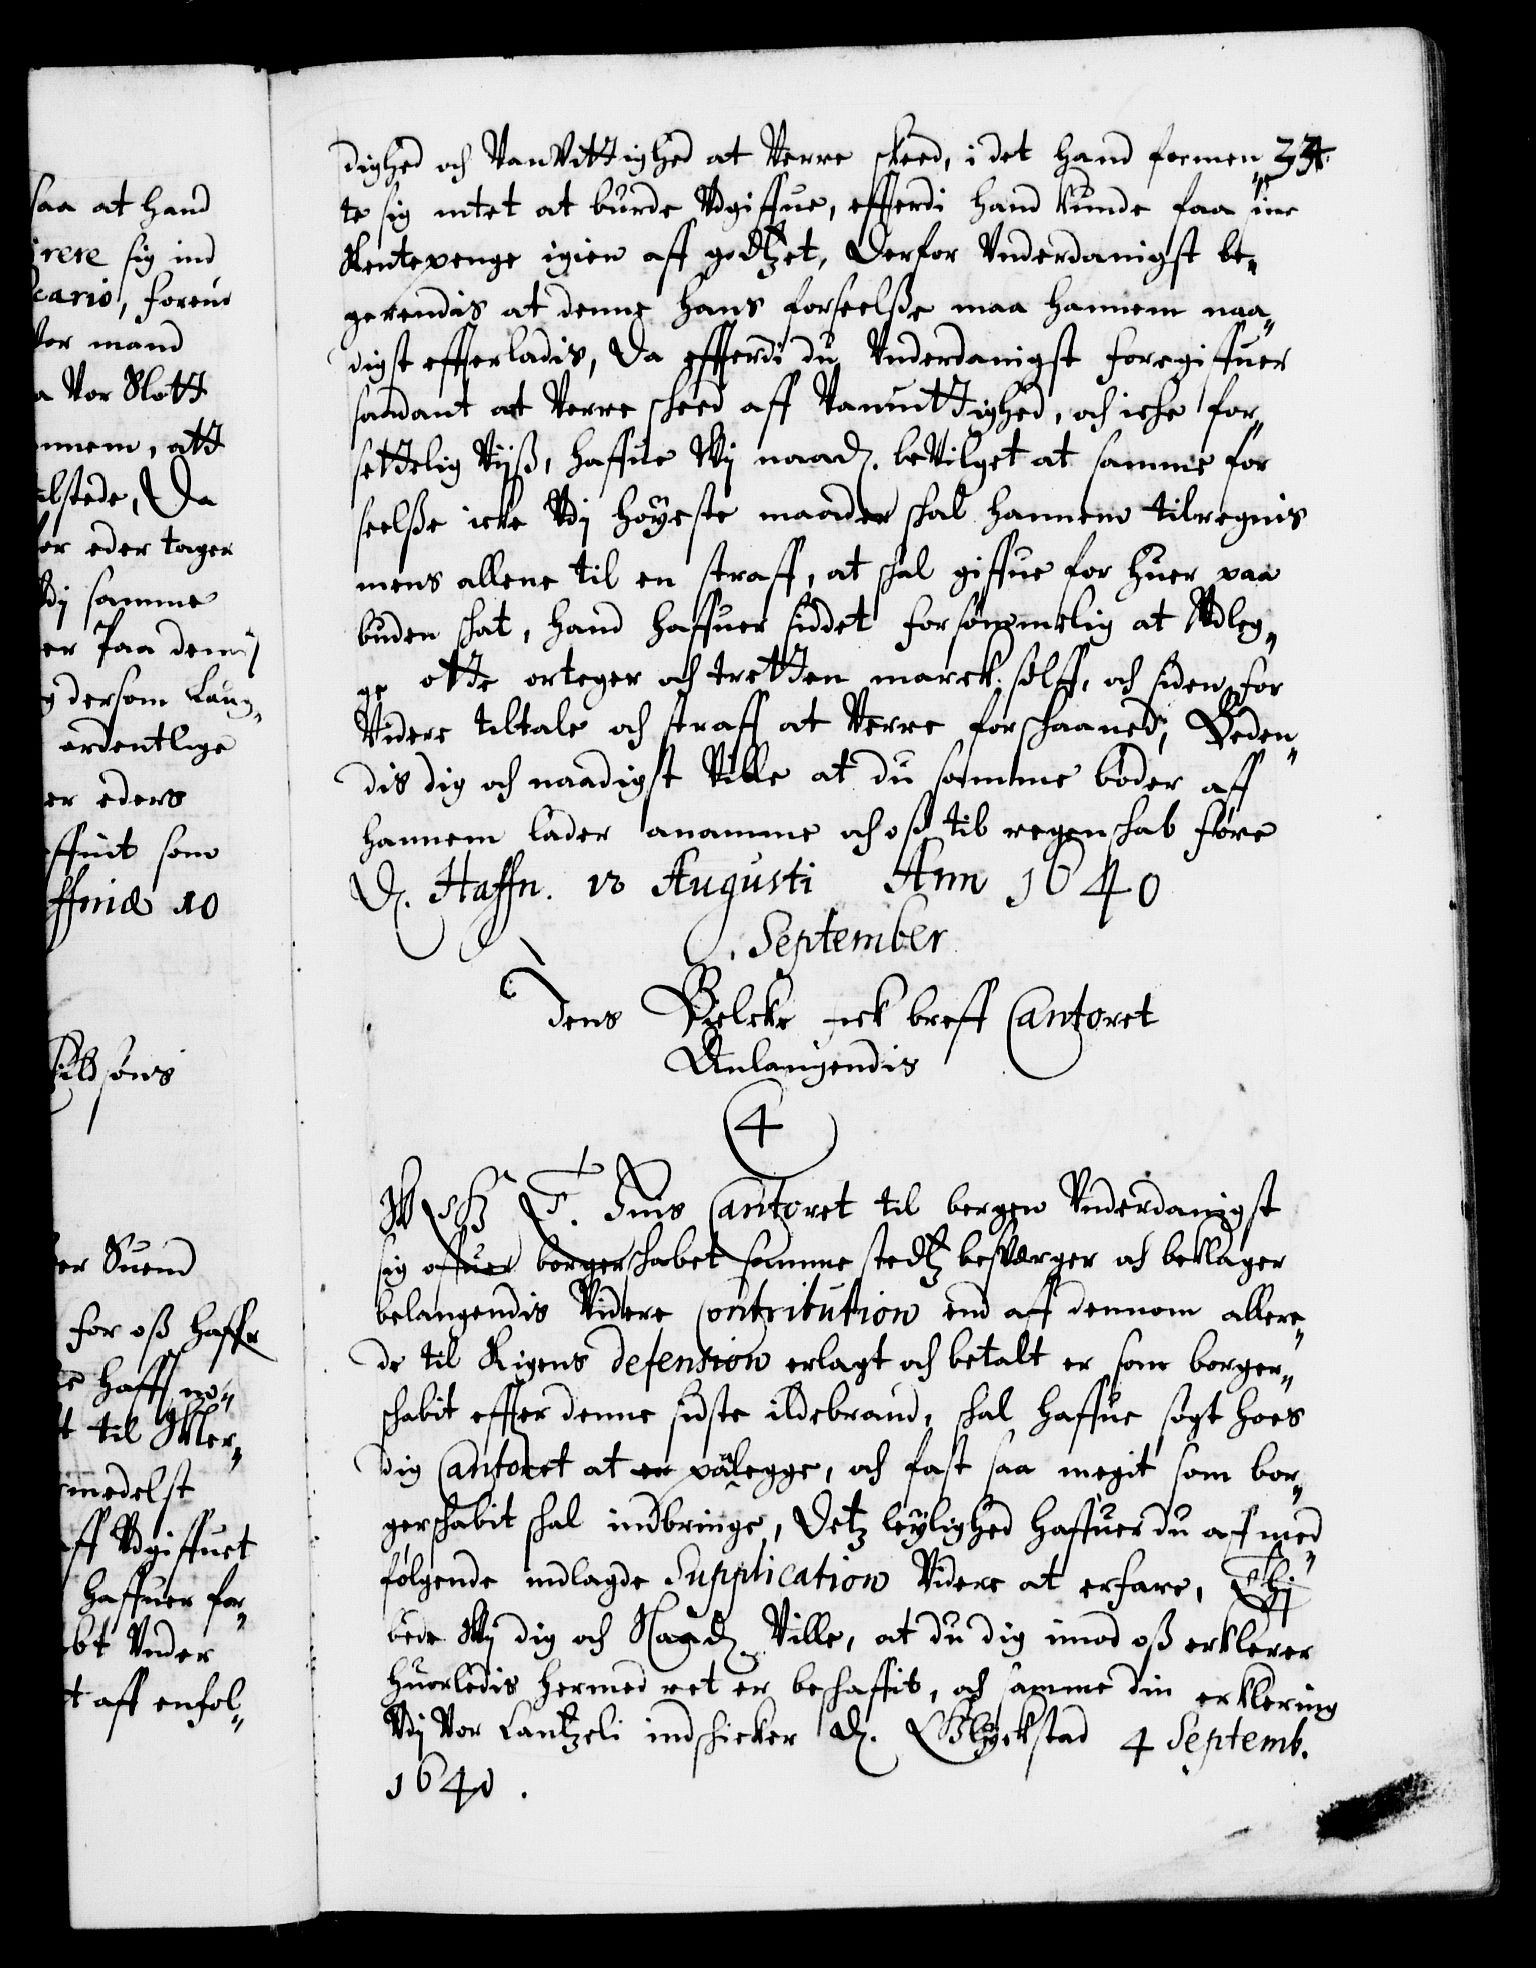 saa at hand
rere sig ind
cario, forend
vor mand
a Vor Slott
nnem, att
elstede, Da
for eder tager
Vdj samme
er Paa dem
dersom Laug„
ordentlige
er eders
som
10
for oß haffr
til
medelst
aff Vdgiffuet
haffuer for„
Vnder
aff enfol„
dighed och VanVittighed at Verre skeed, i det hand formen„ 34.
te sig intet at burde Vdgiffue, effterdi hand kunde faa sine
Rentepenge igien aff godtzet, Derfor Vnderdanigst be„
gerendis at denne hans forseelße maa hannem naa„
digst effterladis, Da effterdi du Vnderdanigst foregiffuer
saadant at Verre skeed aff Vanvittighed, och icke for„
settelig Vijß, haffue Wij naad. beVilget at samme for
seelße icke Vdj høyeste maader skal hannem tilregnis
mens allene til en straff, at skal giffue for huer paa
buden skat, hand haffuer siddet forsømmelig at Vdleg„
ge otte orteger och tretten marck sølff, och siden for
Videre tiltale och straff at Verre forskaaned, Beden„
dis dig och naadigst Ville at du samme bøder aff
hannem lader anamme och oß til regenskab føre
D. Haffn. 13 Augusti Ann 1640
September
Jens Bielcke fick breff Cantoret
Anlangendis
4
sig offuer borgerskabet samme stedtz besværger och beklager
belangendis Videre Contribution end aff dennom allere„
de til Rigens defension erlagt och betalt er som borger„
skabit effter denne sidste ildebrand, skal haffue søgt hoes
dig Cantoret at pålegge, och fast saa megit som bor„
gerskabit skal indbringe, Detz leylighed haffuer du aff med„
følgende indlagde Supplication Videre at erfare, Thj
bede Wij dig och Naad. Ville, at du dig imod oß erklerer
huorledis hermed ret er beskaffit, och samme din erklering
Vdj Vor Cantzeli indskicker D. Glyckstad 4 Septemb.
1640.